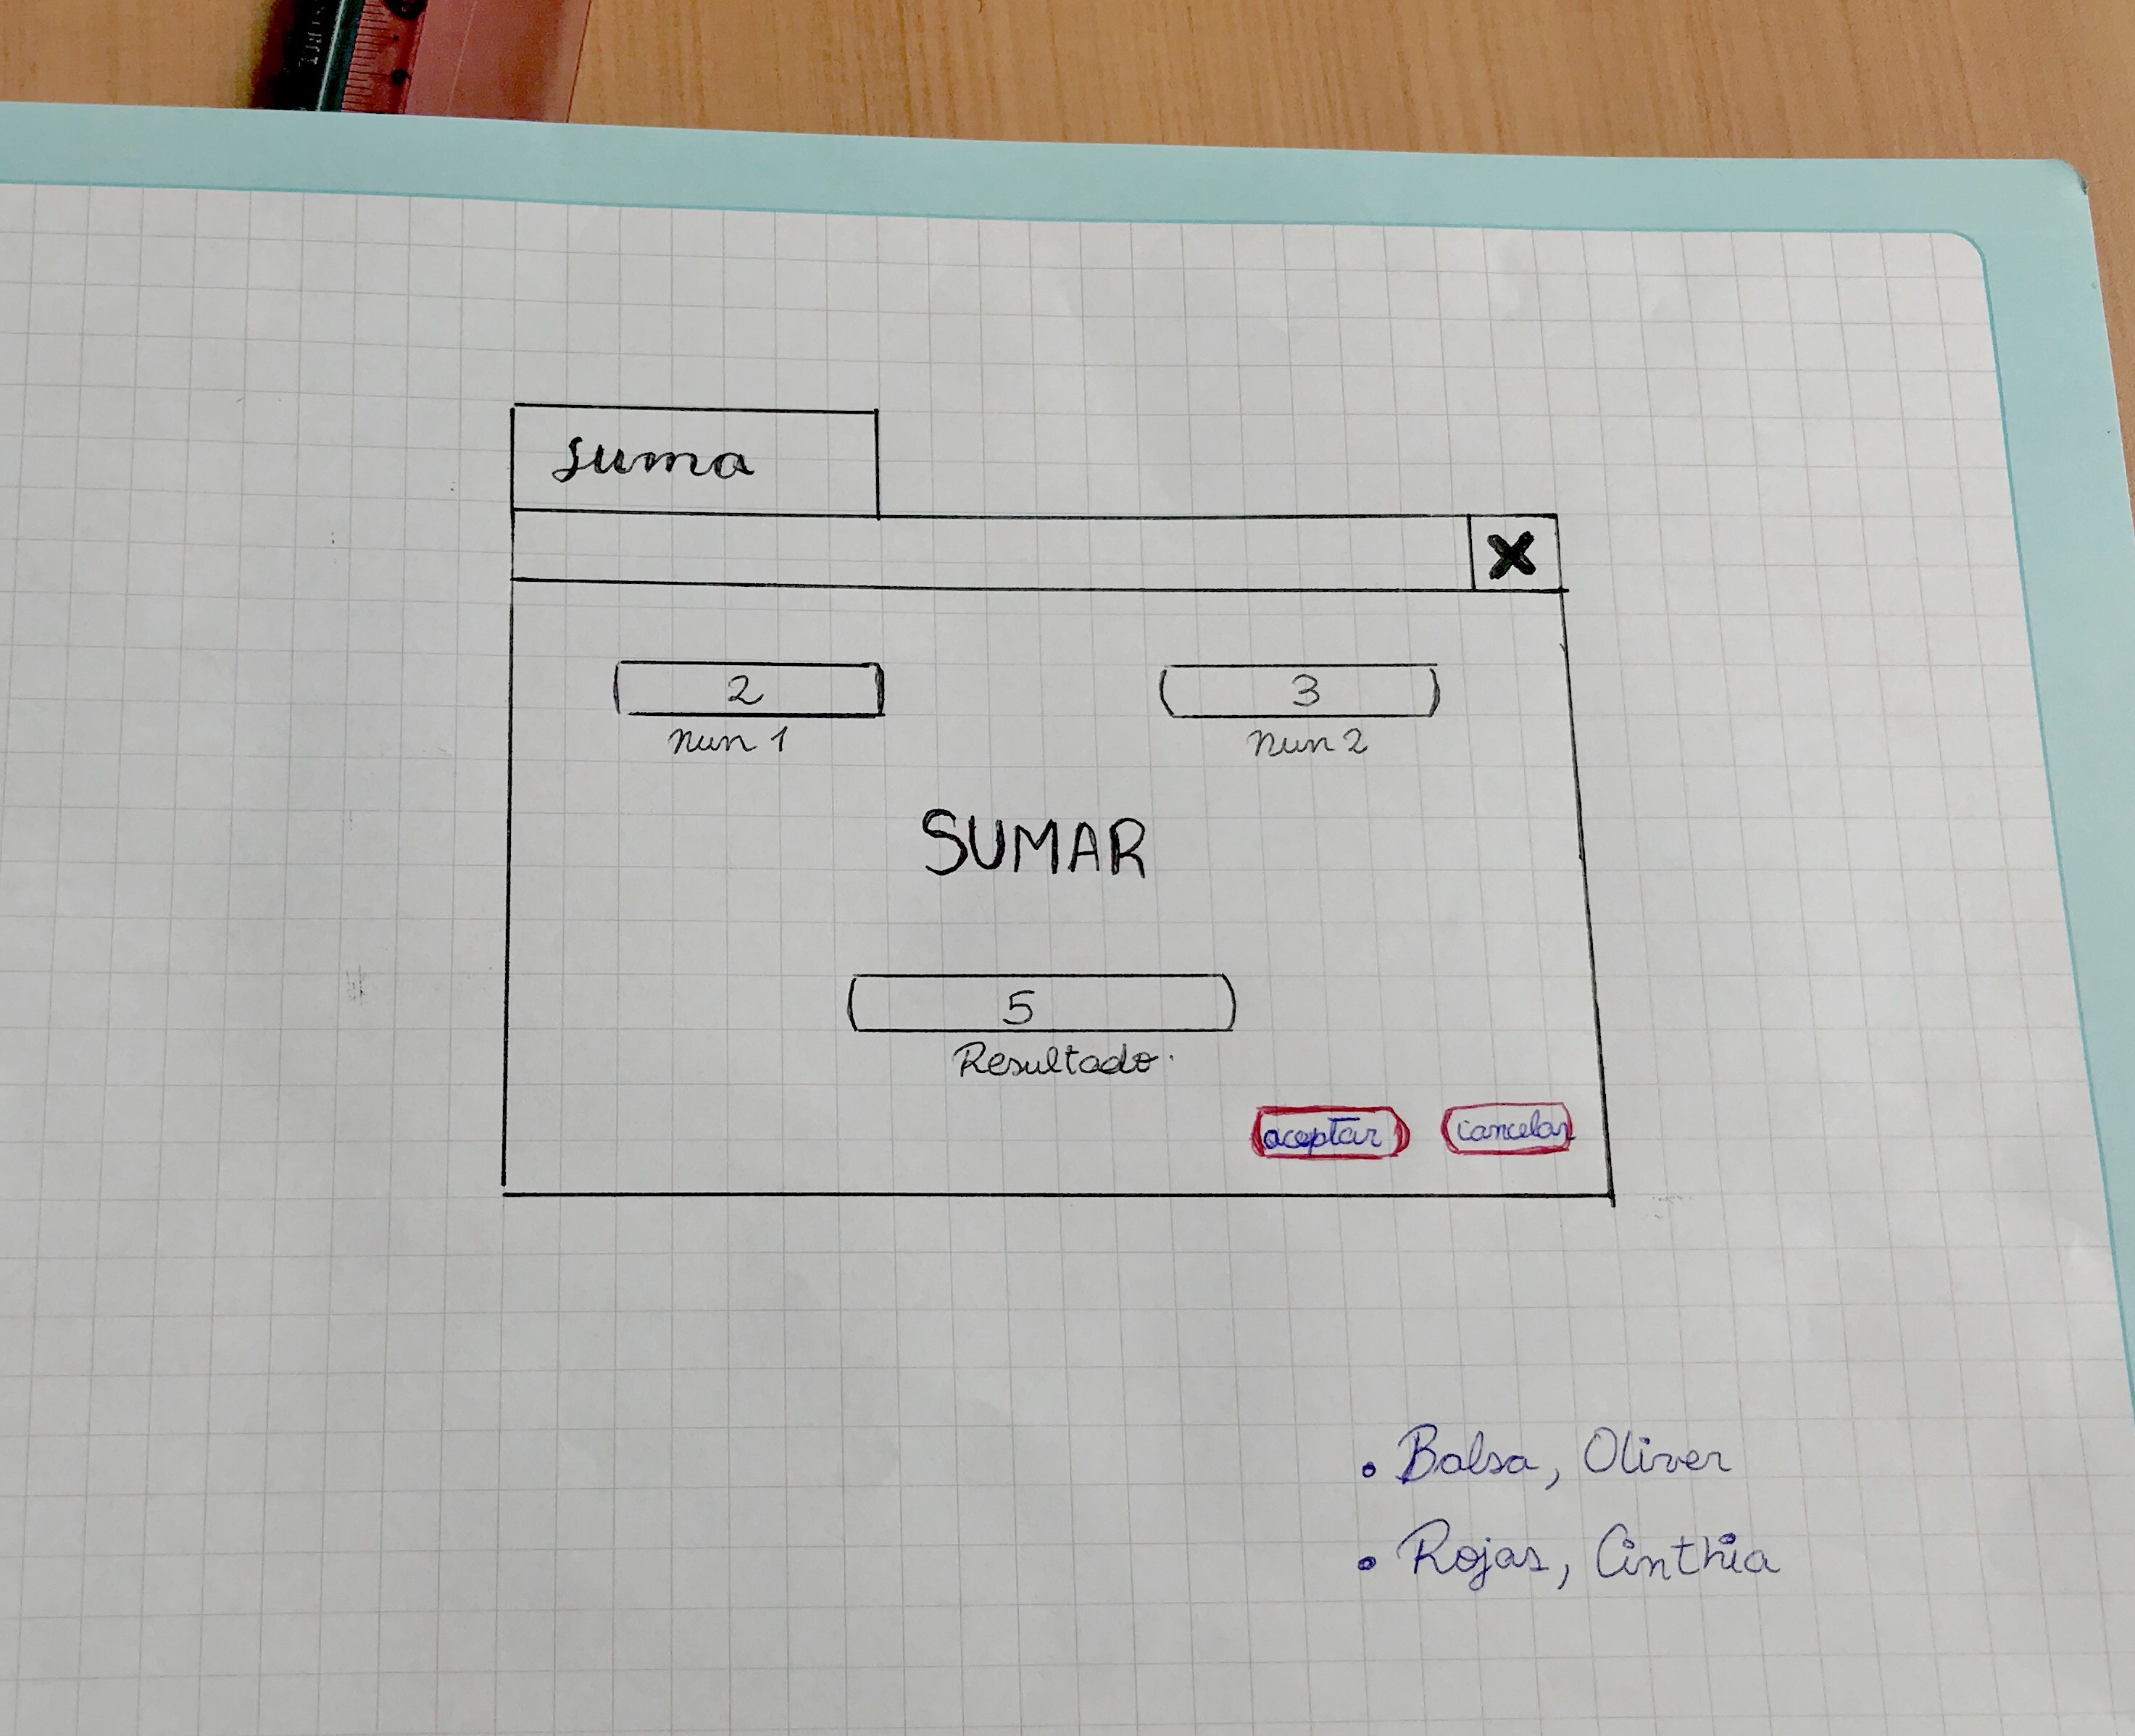 suma
X
2
3
nun 1
nun 2
SUMAR
5
Resultado.
aceptar
cancelar
• Balsa, Oliver
• Rojas, Cinthia